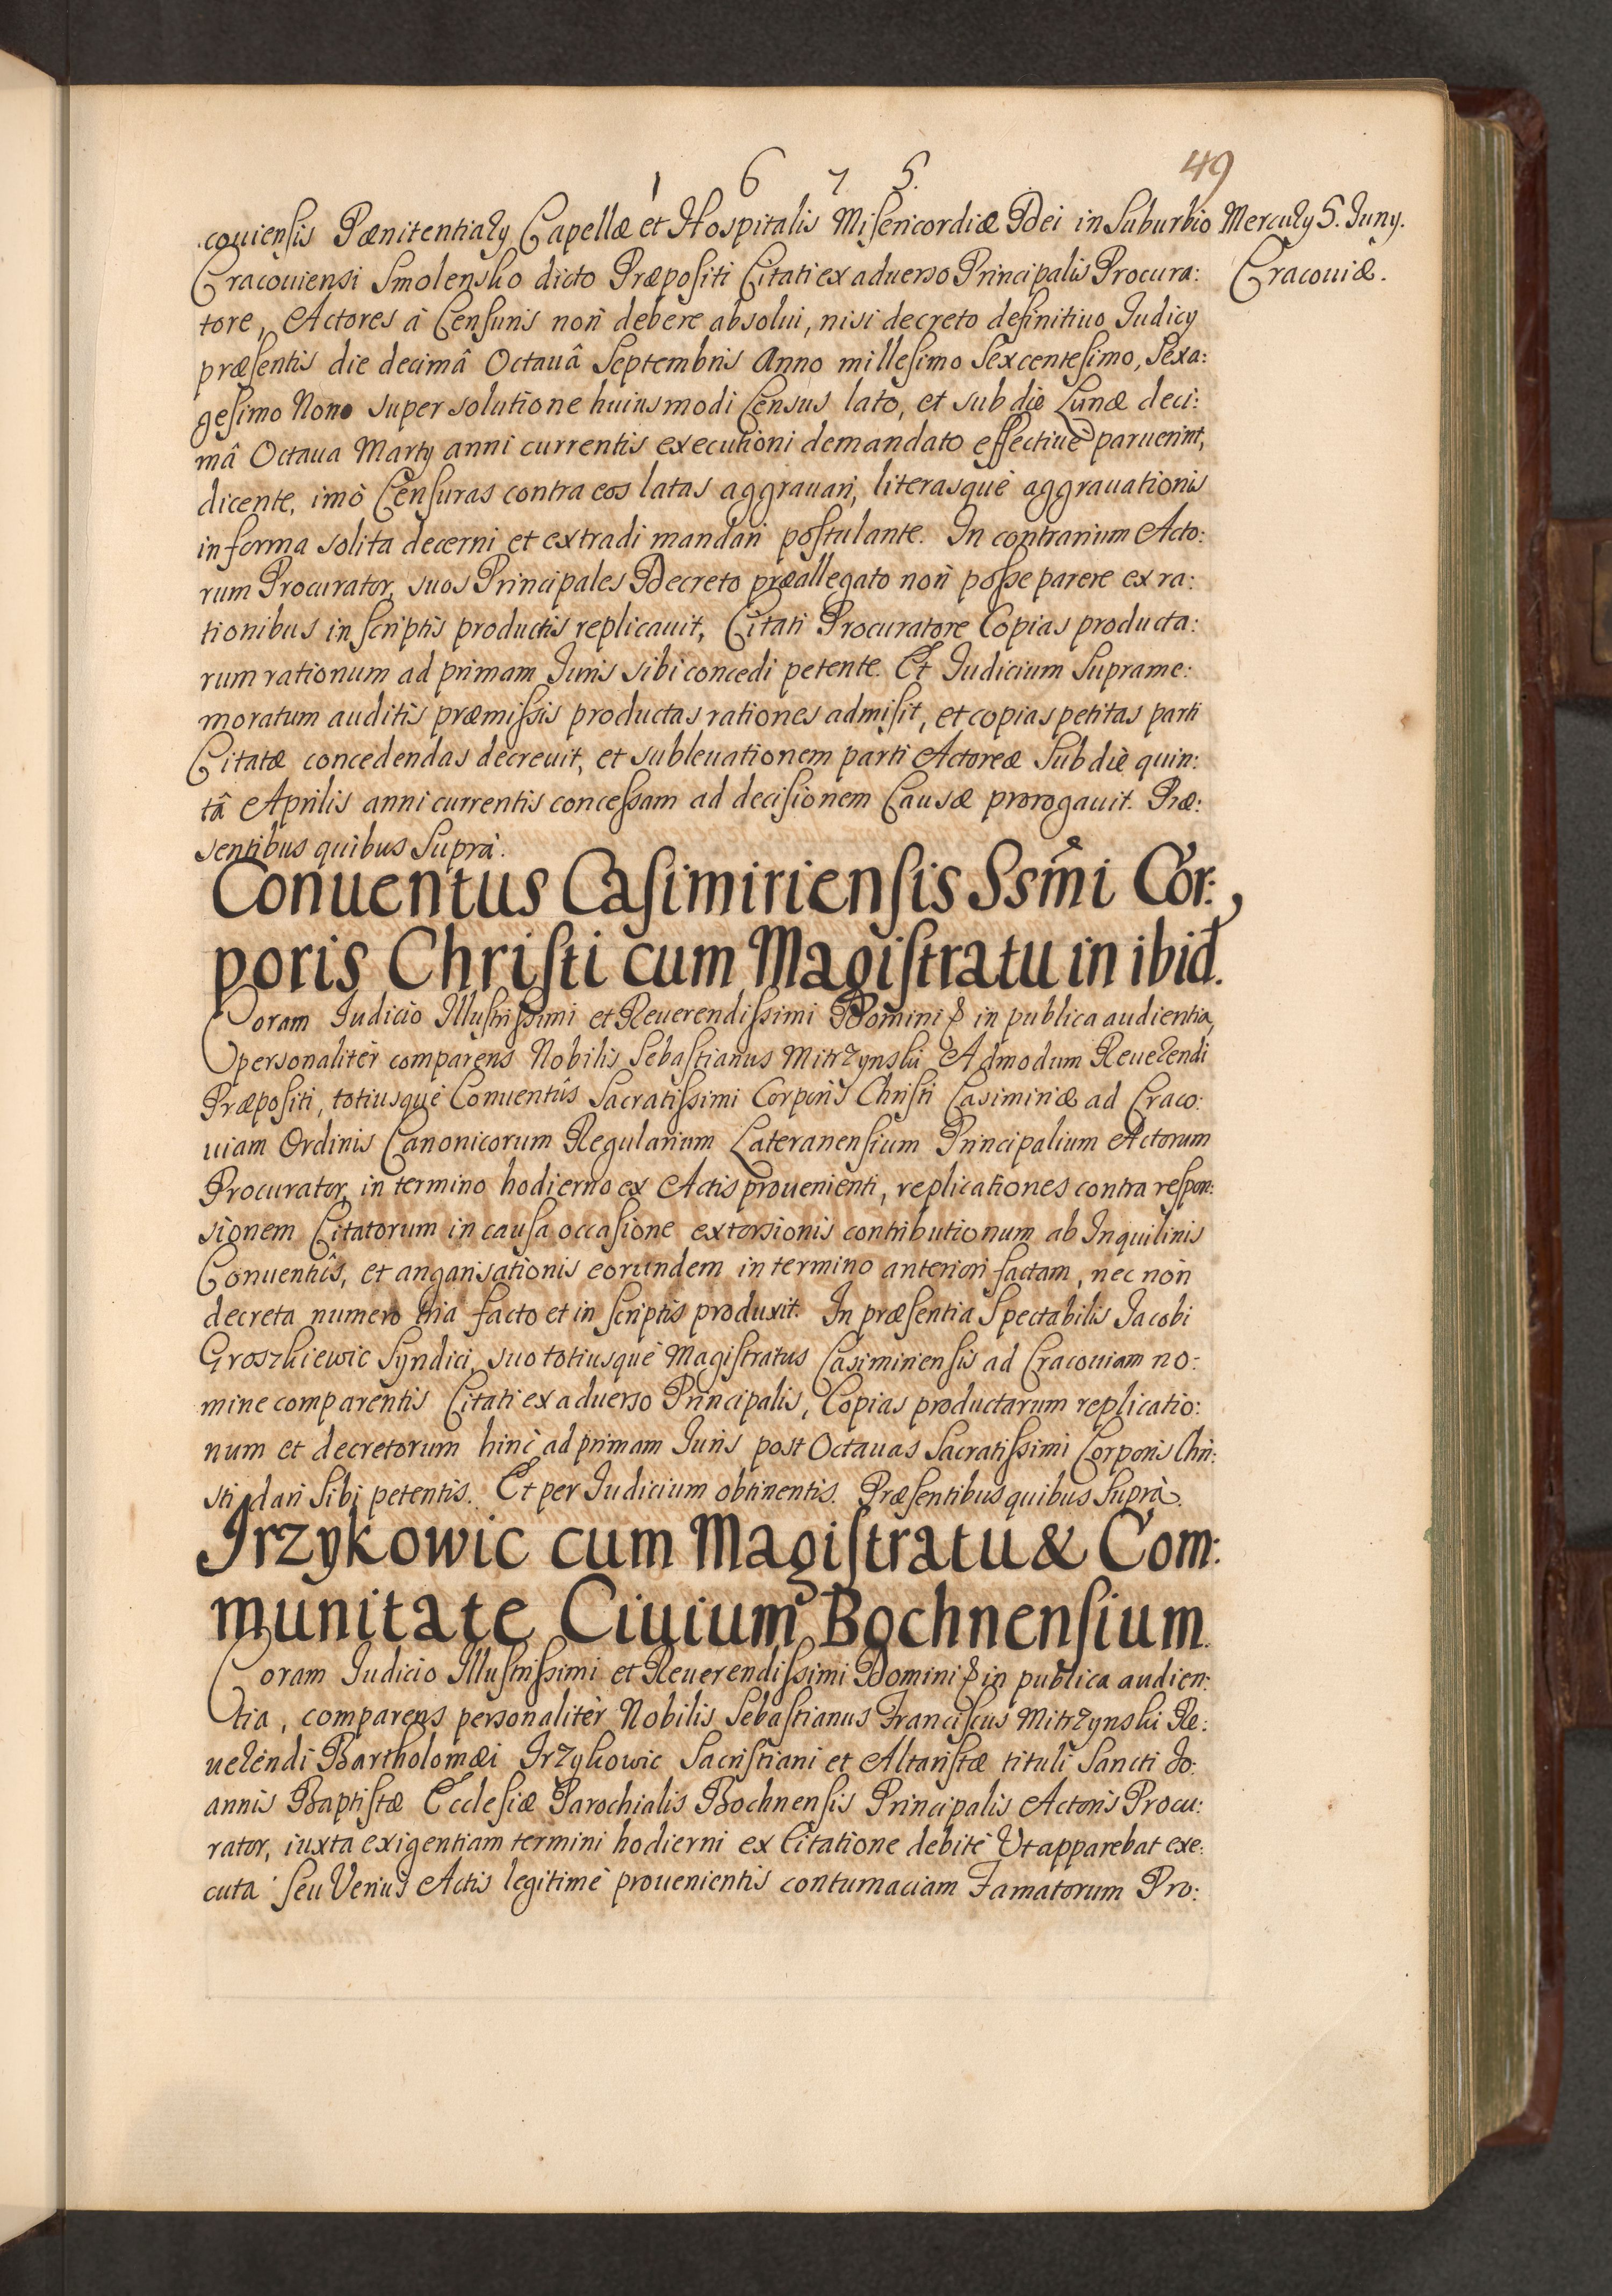 1 6 7 5.
49
couiensis Pænitentiarÿ Capellæ et Hospitalis Misericordiæ Dei in Suburbio
Mercurÿ 5. Junÿ.
Cracouiæ.
Cracouiensi Smolensko dicto Præpositi Citati ex aduerso Principalis Procura:
tore, Actores à Censuris non debere absolui, nisi decreto definitiuo Judicÿ
præsentis die decimâ Octauâ Septembris Anno millesimo Sexcentesimo, Sexa:
gesimo Nono super solutione huiusmodi Census lato, et sub die Lunæ deci:
mâ Octaua Martÿ anni currentis executioni demandato effectiuè paruerint,
dicente, imò Censuras contra eos latas aggrauari, literasquè aggrauationis
in forma solita decerni et extradi mandari postulante. In contrarium Acto:
rum Procurator, suos Principales Decreto præallegato non posse parere ex ra:
tionibus in scriptis productis replicauit, Citati Procuratore Copias producta:
rum rationum ad primam Juris sibi concedi petente. Et Judicium Suprame:
moratum auditis præmissis productas rationes admisit, et copias petitas parti
Citatæ concedendas decreuit, et subleuationem parti Actoreæ Sub diè quin:
tâ Aprilis anni currentis concessam ad decisionem Causæ prorogauit. Præ:
sentibus quibus Suprà.
Conuentus Casimiriensis Ssmi Cor:
poris Christi cum Magistratu in ibid.
Coram Judicio Illustrissimi et Reuerendissimi Domini & in publica audientia,
personalitèr comparens Nobilis Sebastianus Mitrzynski Admodum Reuerendi
Præpositi, totiusquè Conuentûs Sacratissimi Corporis Christi Casimiriæ ad Craco:
uiam Ordinis Canonicorum Regularium Lateranensium Principalium Actorum
Procurator, in termino hodierno ex Actis prouenienti, replicationes contra respon:
sionem Citatorum in causa occasione extorsionis contributionum ab Inquilinis
Conuentûs, et angarisationis eorundem in termino anteriori factam, nec non
decreta numero tria facto et in scriptis produxit. In præsentia Spectabilis Jacobi
Groszkiewic Syndici, suo totiusquè Magistratus Casimiriensis ad Cracouiam no:
mine comparentis Citati ex aduerso Principalis, Copias productarum replicatio:
num et decretorum hinc ad primam Juris post Octauas Sacratissimi Corporis Chri:
sti dari Sibi petentis. Et per Judicium obtinentis. Præsentibus quibus Suprà.
Jrzykowic cum Magistratu & Com:
munitate Ciuium Bochnensium.
Coram Judicio Illustrissimi et Reuerendissimi Domini & in publica audien:
tia, comparens personalitèr Nobilis Sebastianus Franciscus Mitrzynski Re:
uerendi Bartholomæi Jrzykowic Sacristiani et Altaristæ tituli Sancti Jo:
annis Baptistæ Ecclesiæ Parochialis Bochnensis Principalis Actoris Procu:
rator, iuxta exigentiam termini hodierni ex Citatione debitè Ut apparebat exe:
cuta seu Verius Actis legitimè prouenientis contumaciam Famatorum Pro: